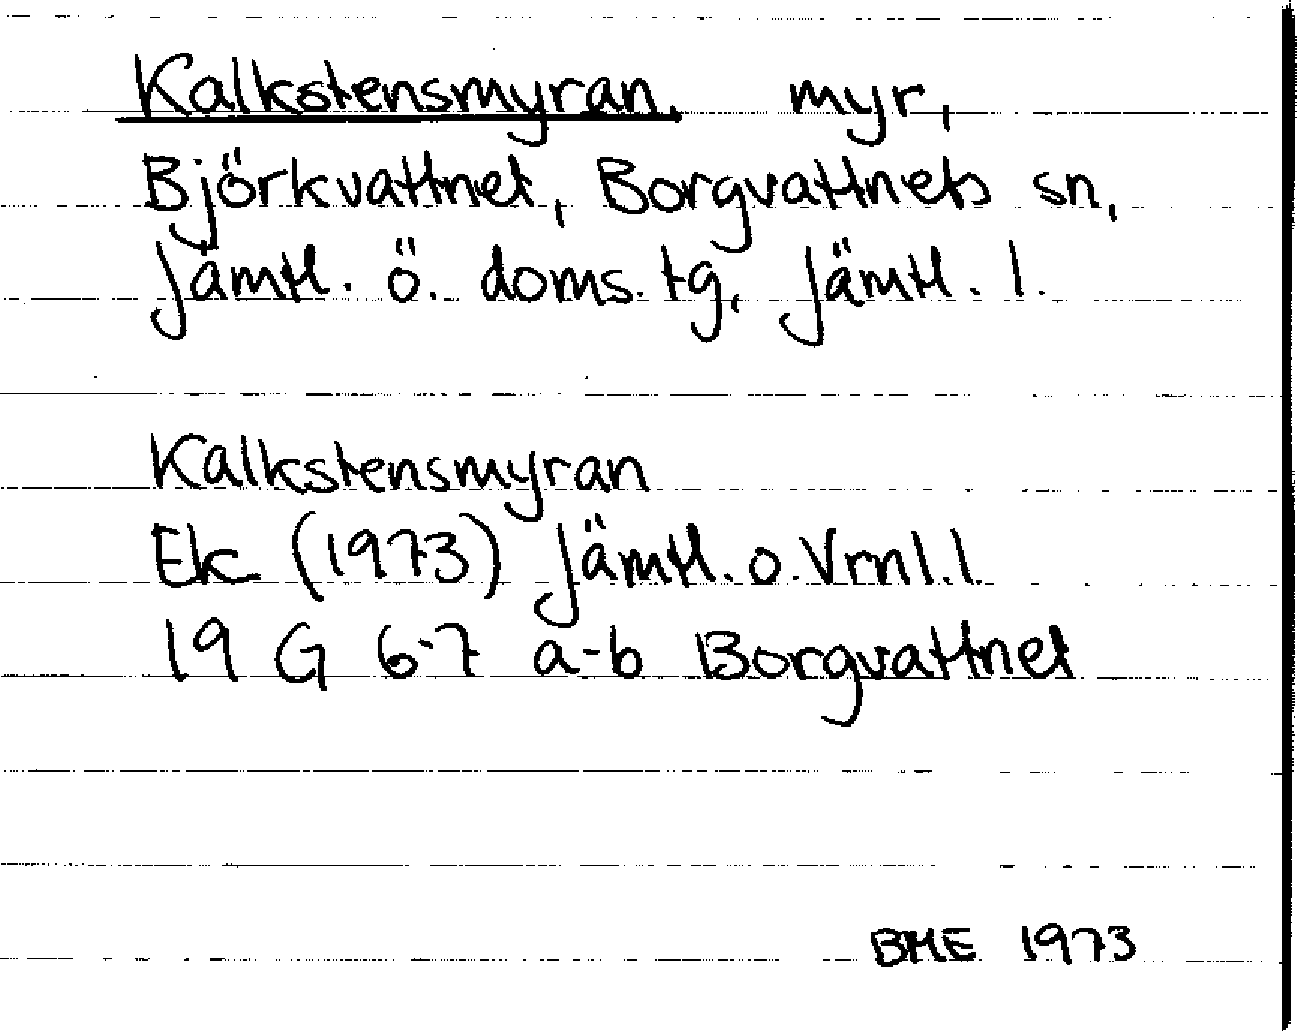 Kalkstensmyran, myr,
Björkvattnet, Borgvattnets sn,
Jämtl. ö. doms. tg, Jämtl. l.
Kalkstensmyran
Ek (1973) Jämtl. o. Vrnl. l.
19 G 6-7 a-b Borgvattnet
BME 1973